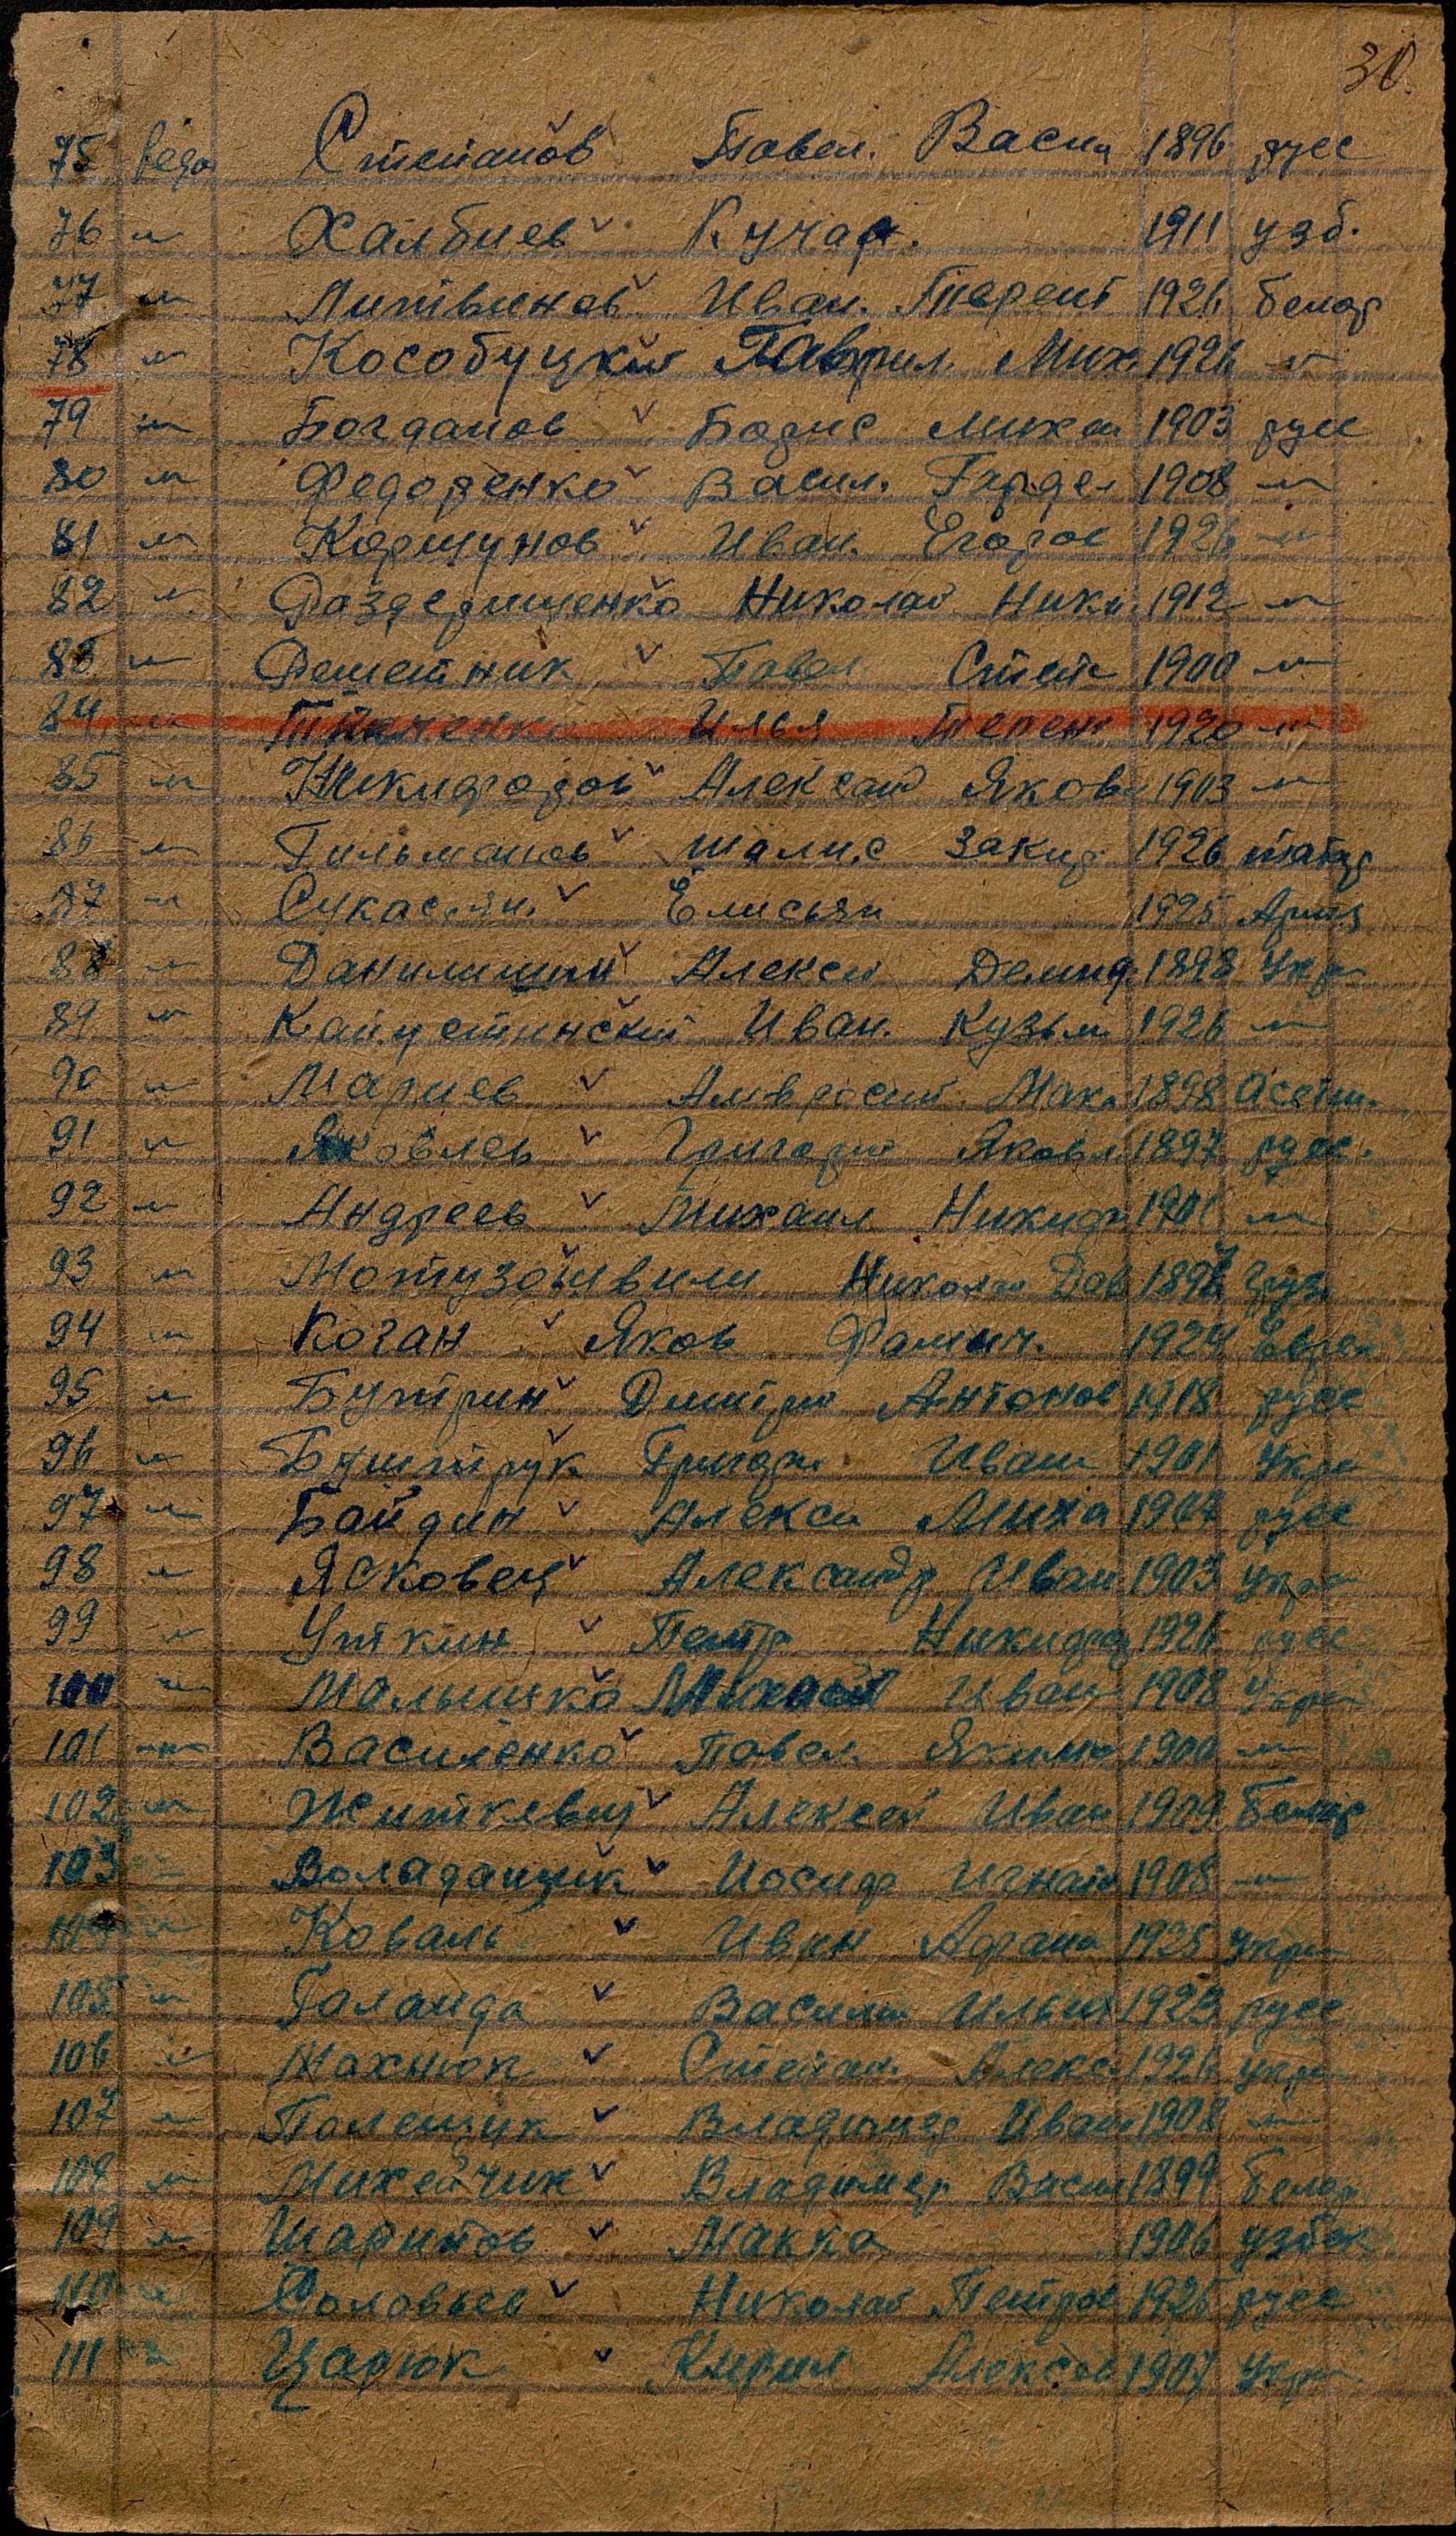 30.
75 Степанов Павел. Васил 1896 русс
76 -"- Халбиев Кучар. 1911 узб.
77 -"- Литвинов Иван. Терент 1926 белор
78 -"- Кособуцкий Гаврил. Мих. 1926 -"-
79 -"- Богданов Борис Михай 1903 русс
80 -"- Федоренко Васил. Гордел 1908 -"-
81 -"- Коршунов Иван. Егоров 1926 -"-
82 -"- Раздеришенко Николай Ники. 1912 -"-
83 -"- Решетник Павел Степ 1900 -"-
84 -"- Ткаченко Илья Терен 1920 -"-
85 -"- Никифоров Александ Яков 1903 -"-
86 -"- Гильманов Закир 1926 татар
87 -"- Сукасян. Елисьян 1925 Армя
88 -"- Данилишин Алексей Демид. 1898 Укр
89 -"- Капустинский Иван. Кузьм 1926 -"-
90 -"- Мариев Амвросий. Мак. 1898 Осетин.
91 -"- Яковлев Григорий Яковл 1897 русс.
92 -"- Андреев Михаил Никиф 1901 -"-
93 -"- Мотузошвили Николай Дав 1897 Груз
94 -"- Коган Яков Фомич. 1924 Еврей
95 -"- Бутрин Дмитрий Антонов 1918 русс
96 -"- Бунтрук Григори Иван 1901 Укра
97 -"- Байдин Алексей Миха 1907 русс
98 -"- Ясковец Александр Иван 1903 Укра
99 -"- Уткин Петр Никифор 1926 русс
100 -"- Малышко Иван 1908 Укра
101 -"- Василенко Павел Яким 1900 -"-
102 -"- Житкевич Алексей Иван 1909 Белор
103 -"- Воладащик Иосиф Игнат 1908 -"-
104 -"- Коваль Иван Афана 1925 Укра
105 -"- Галайда Василий Ильич 1923 русс
106 -"- Махнюк Степан. Алекс 1926 Укра
107 -"- Полещук Владимир Иван 1908 -"-
108 -"- Михейчик Владимир Васил 1899 белор
109 -"- Шарипов Макка 1906 узбек
110 -"- Соловьев Николай Петров 1925 русс
111 -"- Царюк Кирил Алексее 1907 Укра